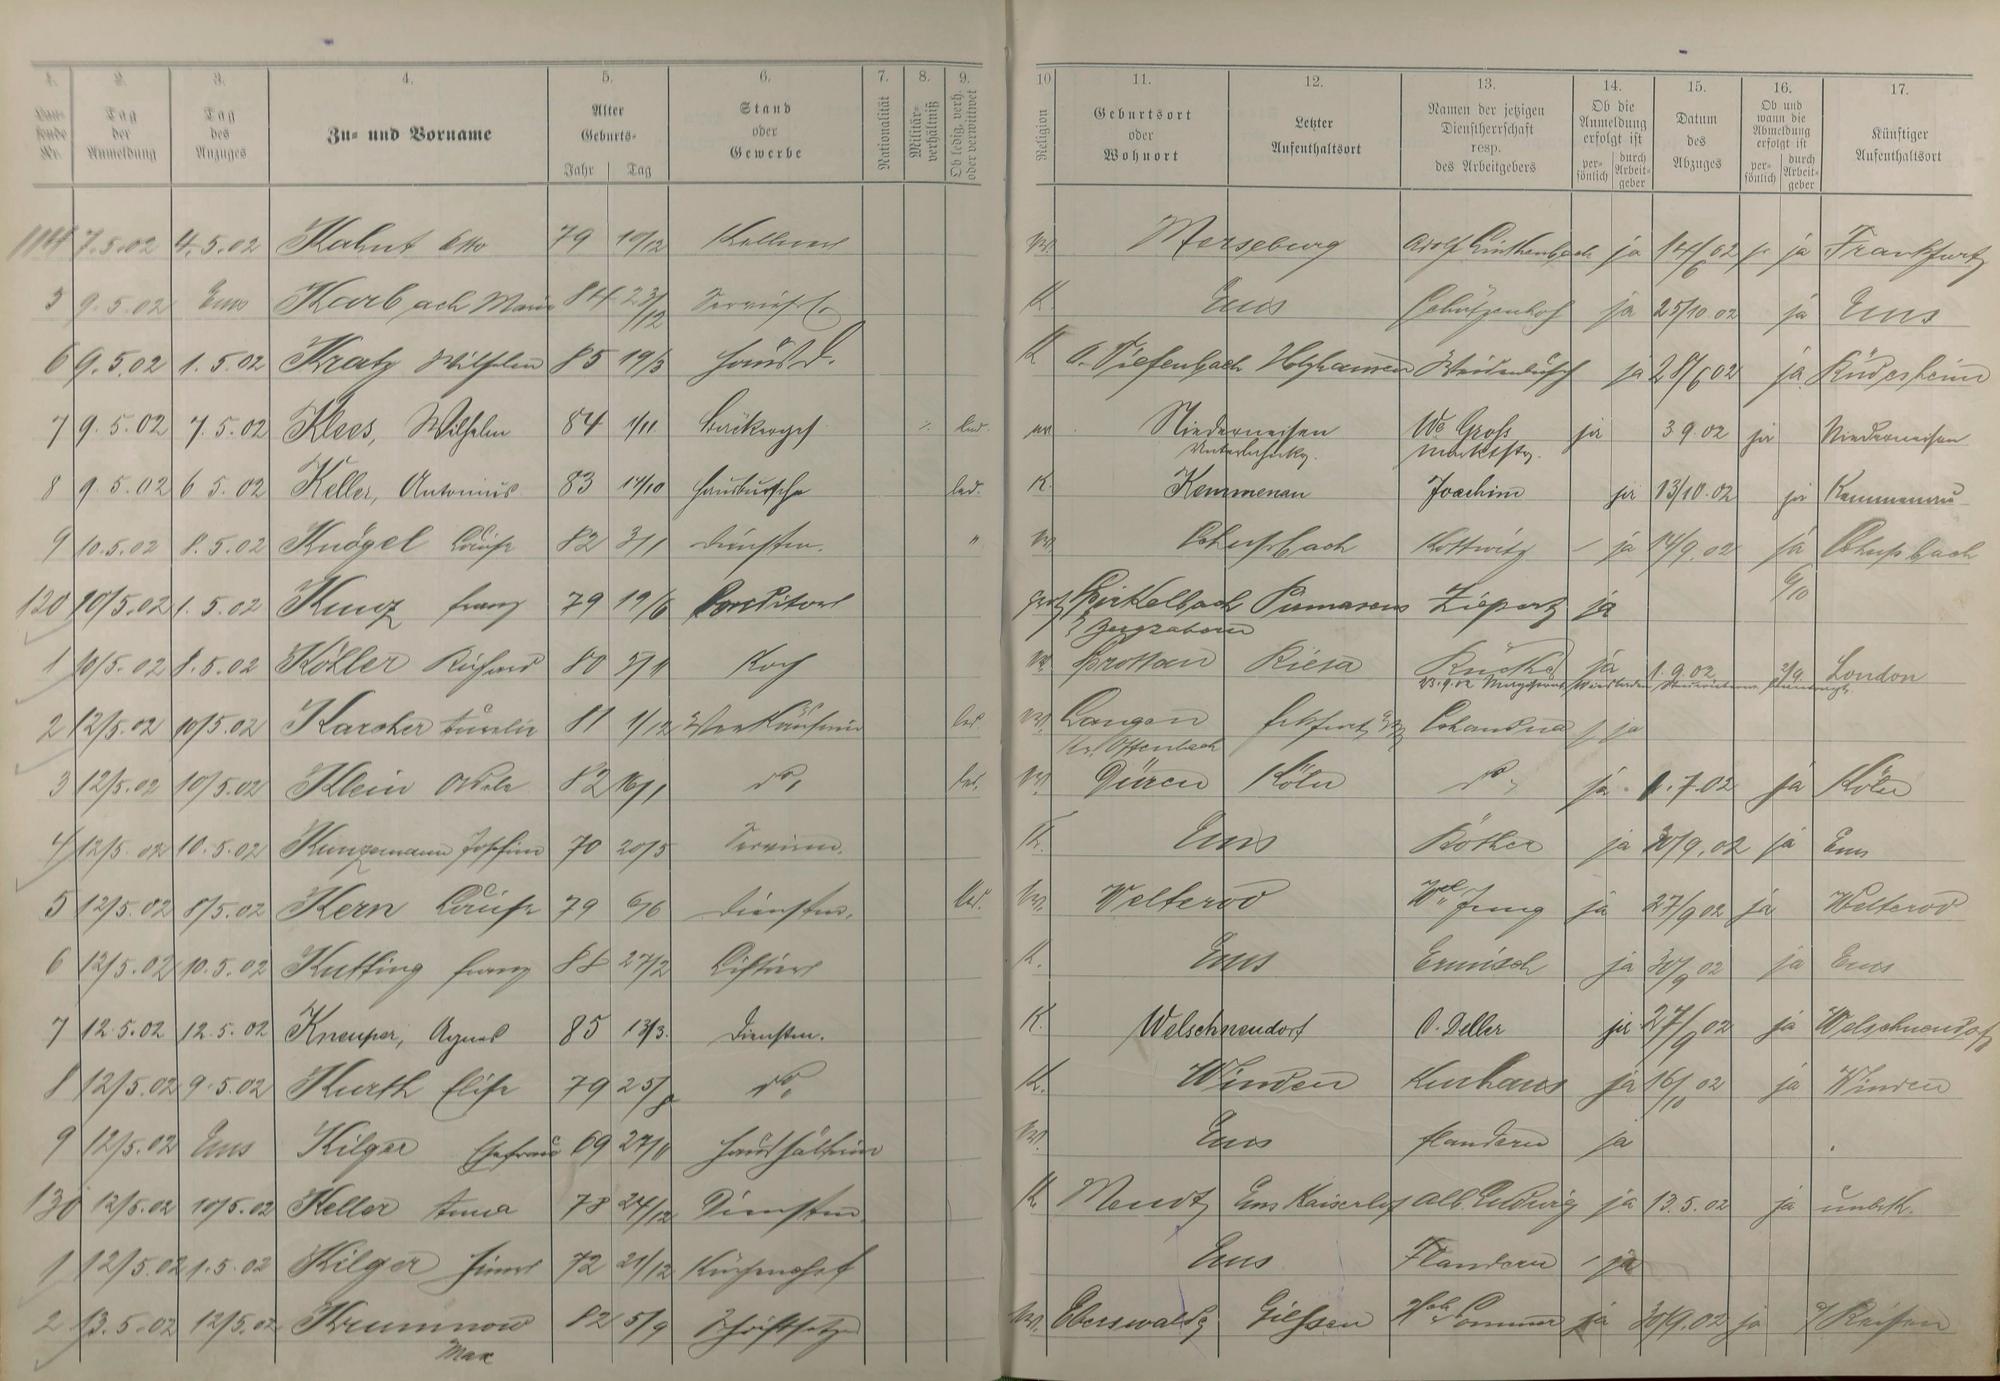 1. 2. 3. 4. 5. 6. 7. 8. 9. 10 11. 12. 13. 14. 15. 16. 17.
Laufende Nr. | Tag der Anmeldung | Tag des Anzuges | Zu- und Vorname | Alter Geburts- Jahr Tag | Stand oder Gewerbe | Nationalität | Militär-verhältniß | Ob ledig, verh. oder verwittwet | Religion | Geburtsort oder Wohnort | Letzter Aufenthaltsort | Namen der jetzigen Dienstherrschaft resp. des Arbeitgebers | Ob die Anmeldung erfolgt ist per-sönlich durch Arbeit-geber | Datum des Abzuges | Ob und wann die Abmeldung erfolgt ist per-sönlich durch Arbeit-geber | Künftiger Aufenthaltsort
7.5.02 4.5.02 Kahnt Otto 79 10/12 Kellner Merseburg Adolf ja 14/6 02 ja Frankfurt
5 9.5.02 Ems Karbach Maria 84 23/12 K. Ems Schützenhof ja 25/10 02 ja Ems
6 9.5.02 1.5.02 Kratz Wilhelm 85 19/3 Hausd. K Holzhausen Weidenbusch ja 28/6 02 ja Rüdesheim
7 9.5.02 7.5.02 Klees, Wilhelm 84 1/11 Bäckerges. led. ev. Niederneisen We Groß ja 3 9.02 ja Niederneisen
Unterlahnkr. Marktstr.
8 9.5.02 6 5.02 Keller, Antonius 83 14/10 Hausbursche led. K. Kemmenau Joachim ja 13/10.02 ja Kemmenau
9 10.5.02 8.5.02 Knögel Louise 82 3/1 Dienstm. " Kottwitz ja 14/9.02 ja
120 10/5.02 1.5.02 Kunz Franz 79 19/6 Conditor Birkelbach Pirmasens ja 6/10
Bergzabern
1 10/5.02 8.5.02 Köhler Richard 80 Koch Riesa ja 1.9.02 2/9 London
2 12/5.02 10/5.02 Karcher Aurelie 81 1/12 Verkäuferin led Langen Frkfurt ja
Kr. Offenbach
3 12/5.02 10/5.02 Klein Adele 82 16/1 do. led. Düren Köln do ja 1.7.02 ja Köln
4 12/5.02 10.5.02 Kunzemann Josefine 70 20/5 K. Ems Röther ja 30/9.02 ja Ems
5 12/5.02 8/5.02 Kern Louise 79 6/6 Dienstm. led. Welterod We Jung ja 27/9 02 ja Welterod
6 12/5.02 10.5.02 Kutting Franz 88 27/2 Liftier K. Ems Ermisch ja 30/9 02 ja Ems
7 12.5.02 12.5.02 Kneuper, Agnes 85 13/3. Dienstm. K. Welschneudorf O. Deller ja 27/9 02 ja Welschneudorf
8 12/5.02 9.5.02 Kurth Elise 79 25/8 do. K. Winden Kurhaus ja 16/10 02 ja Winden
9 12/5.02 Ems Kilger Ehefrau 69 27/11 Haushälterin Ems Flandern ja
130 12/5.02 10/5.02 Keller Anna 78 24/12 Dienstm. K. Mendt Ems Kaiserhof Alb. Ludwig ja 13.5.02 ja unbek.
1 12/5.02 1.5.02 Kilger 72 21/12 Küchenchef Ems Flandern ja
2 13.5.02 12/5.02 Krumnow 82 5/9 Schriftsetzer Eberswalde Giessen Sommer ja 30/9.02 ja a/ Reisen
Max